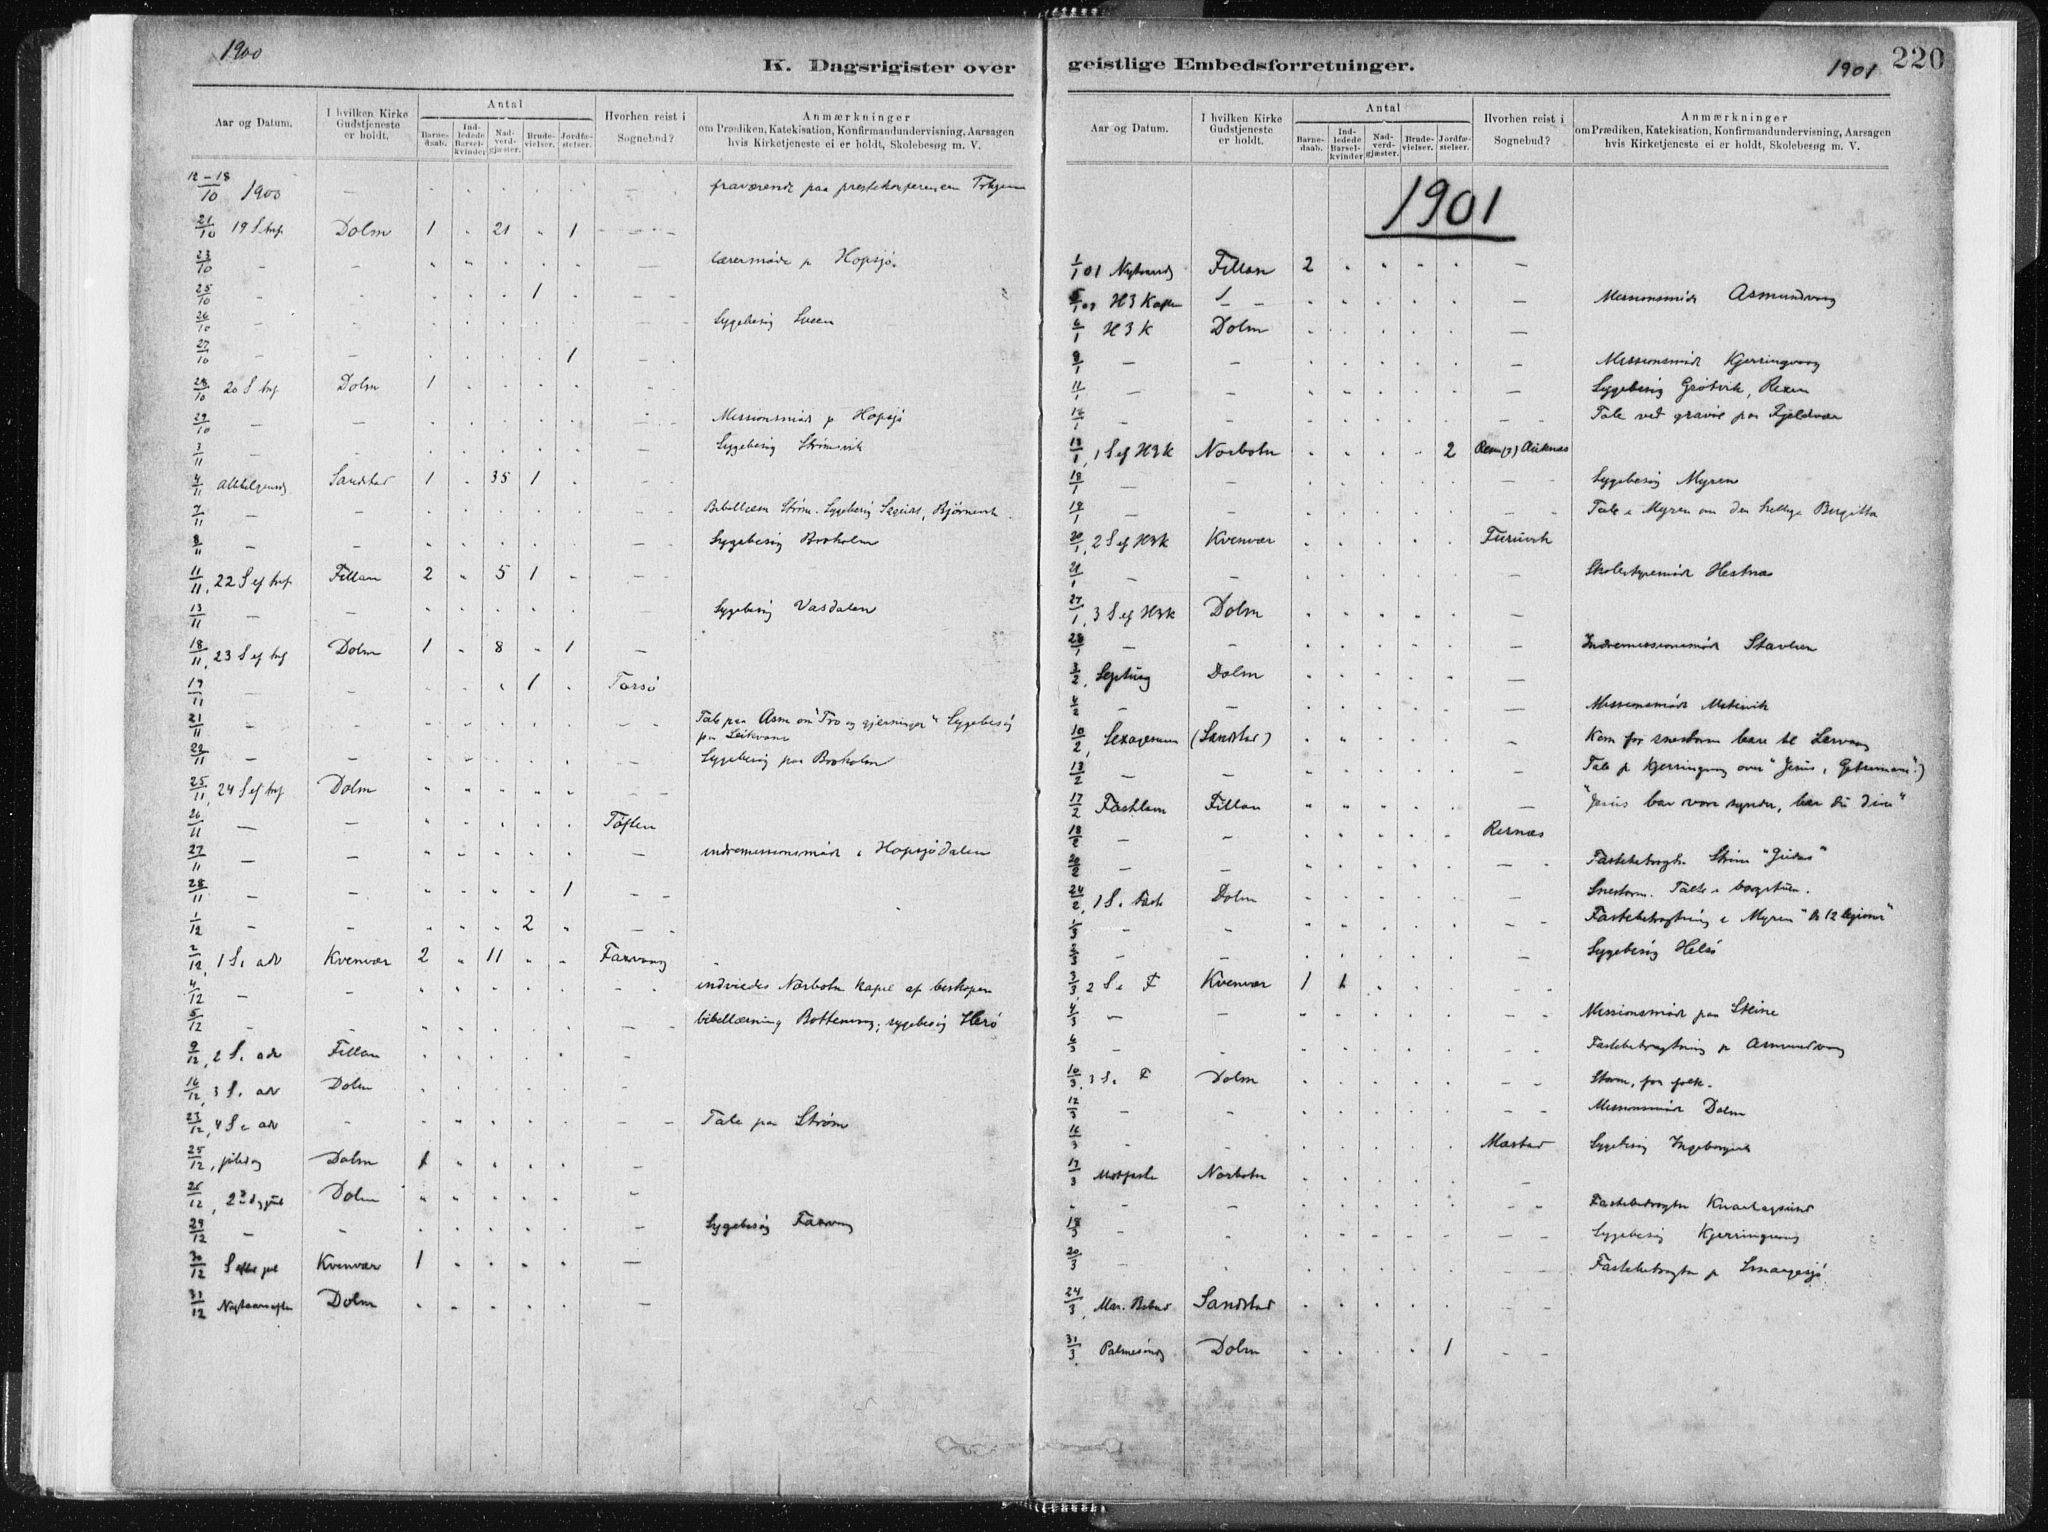 1900
K. Dagsrigister over
Aar og Datum. I hvilken Kirke Gudstjeneste er holdt. Antal Barnedaab. Indledede Barselkvinder Nadverdgjæster. Brudevielser. Jordfæstelser. Hvorhen reist i Sognebud? Anmærkninger om Prædiken, Katekisation, Konfirmandundervisning, Aarsagen hvis Kirketjeneste ei er holdt, Skolebesøg m. V.
12-18/10 1900 fraværende paa prestekonferencen
21/10 19 S Dolm 1 21 1
23/10 lærermøde p Hopsjø.
25/10 1
26/10 Sygebesøg Sveen
27/10 1
28/10 20 S Dolm 1
29/10 Missionsmøde p Hopsjø
3/11 Sygebesøg Strømsvik
4/11 Sandstad 1 35 1
7/11 Strøm. Sygebesøg Bjørnevik
8/11 Sygebesøg Boxholm
11/11, 22 S ef Fillan 2 5 1
13/11 Sygebesøg Vasdalen
18/11, 23 S ef Dolm 1 8 1
19/11 1 Tarsø
21/11 Tale paa Asm om "Tro og gjerninger" Sygebesøg
paa Leikvam
22/11 Sygebesøg paa Boxholm
25/11, 24 S ef Dolm
26/11 Töften
27/11 indremissionsmøde i Hopsjødalen
28/11 1
1/12 2
2/12, 1 S. adv Kvenvær 2 11
4/12 indviedes Nørbotn kapel af biskopen
5/12 bibellæsning ; sygebesøg Herø
9/12, 2 S. adv Fillan
16/12, 3 S. adv Dolm
23/12, 4 S. adv Tale paa Strøm
25/12, juledag Dolm 1
26/12, Dolm
29/12 Sygebesøg
30/12 S efter jul Kvenvær 1
31/12 Nytaarsaften Dolm
geistlige Embedsforretninger.
1901 220
Aar og Datum. I hvilken Kirke Gudstjeneste er holdt. Antal Barnedaab. Indledede Barselkvinder Nadverdgjæster. Brudevielser. Jordfæstelser. Hvorhen reist i Sognebud? Anmærkninger om Prædiken, Katekisation, Konfirmandundervisning, Aarsagen hvis Kirketjeneste ei er holdt, Skolebesøg m. V.
1901
1/1 01 Fillan 2
H3K Missionsmøde Asmundvag
6/1 H3K Dolm
9/1 Missionsmøde Kjerringvag
11/1 Sygebesøg Grøtvik,
Tale ved gravøl paa Fjeldvær
13/1, 1 S ef H3K Nørbotn 2
18/1 Sygebesøg Myren
19/1 Tale i Myren om den hellige Birgitta
20/1, 2 S ef H3K Kvenvær Furuvik
21/1 Skolestyremøde Hestnæs
27/1, 3 S ef H3K Dolm
28/1 Indremissionsmøde
3/2, Dolm
4/2 Missionsmøde
10/2, (Sandstad) Kom for snestorm bare til
13/2 Tale p Kjerringvag over "Jesus i Getsemane"
17/2 Fastelavn Fillan "Jesus bar vore synder, bær du dine"
18/2
20/2 Fastebetragtn. Strøm "Judas"
24/2, 1 S. Faste Dolm Snestorm. Talte i borgstuen.
1/3 Fastebetragtning i Myren "De 12 legioner"
Sygebesøg Helsø
3/3, 2 S. F Kvenvær 1 1
4/3 Missionsmøde paa Steine
6/3 Fastebetragtning p Asmundvag
10/3, 3 S. F Dolm Storm, faa folk.
12/3 Missionsmøde Dolm
16/3 Mastad Sygebesøg
17/3 Midtfaste Nørbotn
Fastebetragtn Knarlagsund
18/3 Sygebesøg Kjerringvag
20/3 Fastebetragtn p Smaagesjø
24/3, Mar. Bebud Sandstad
31/3, Palmesøndg Dolm 1